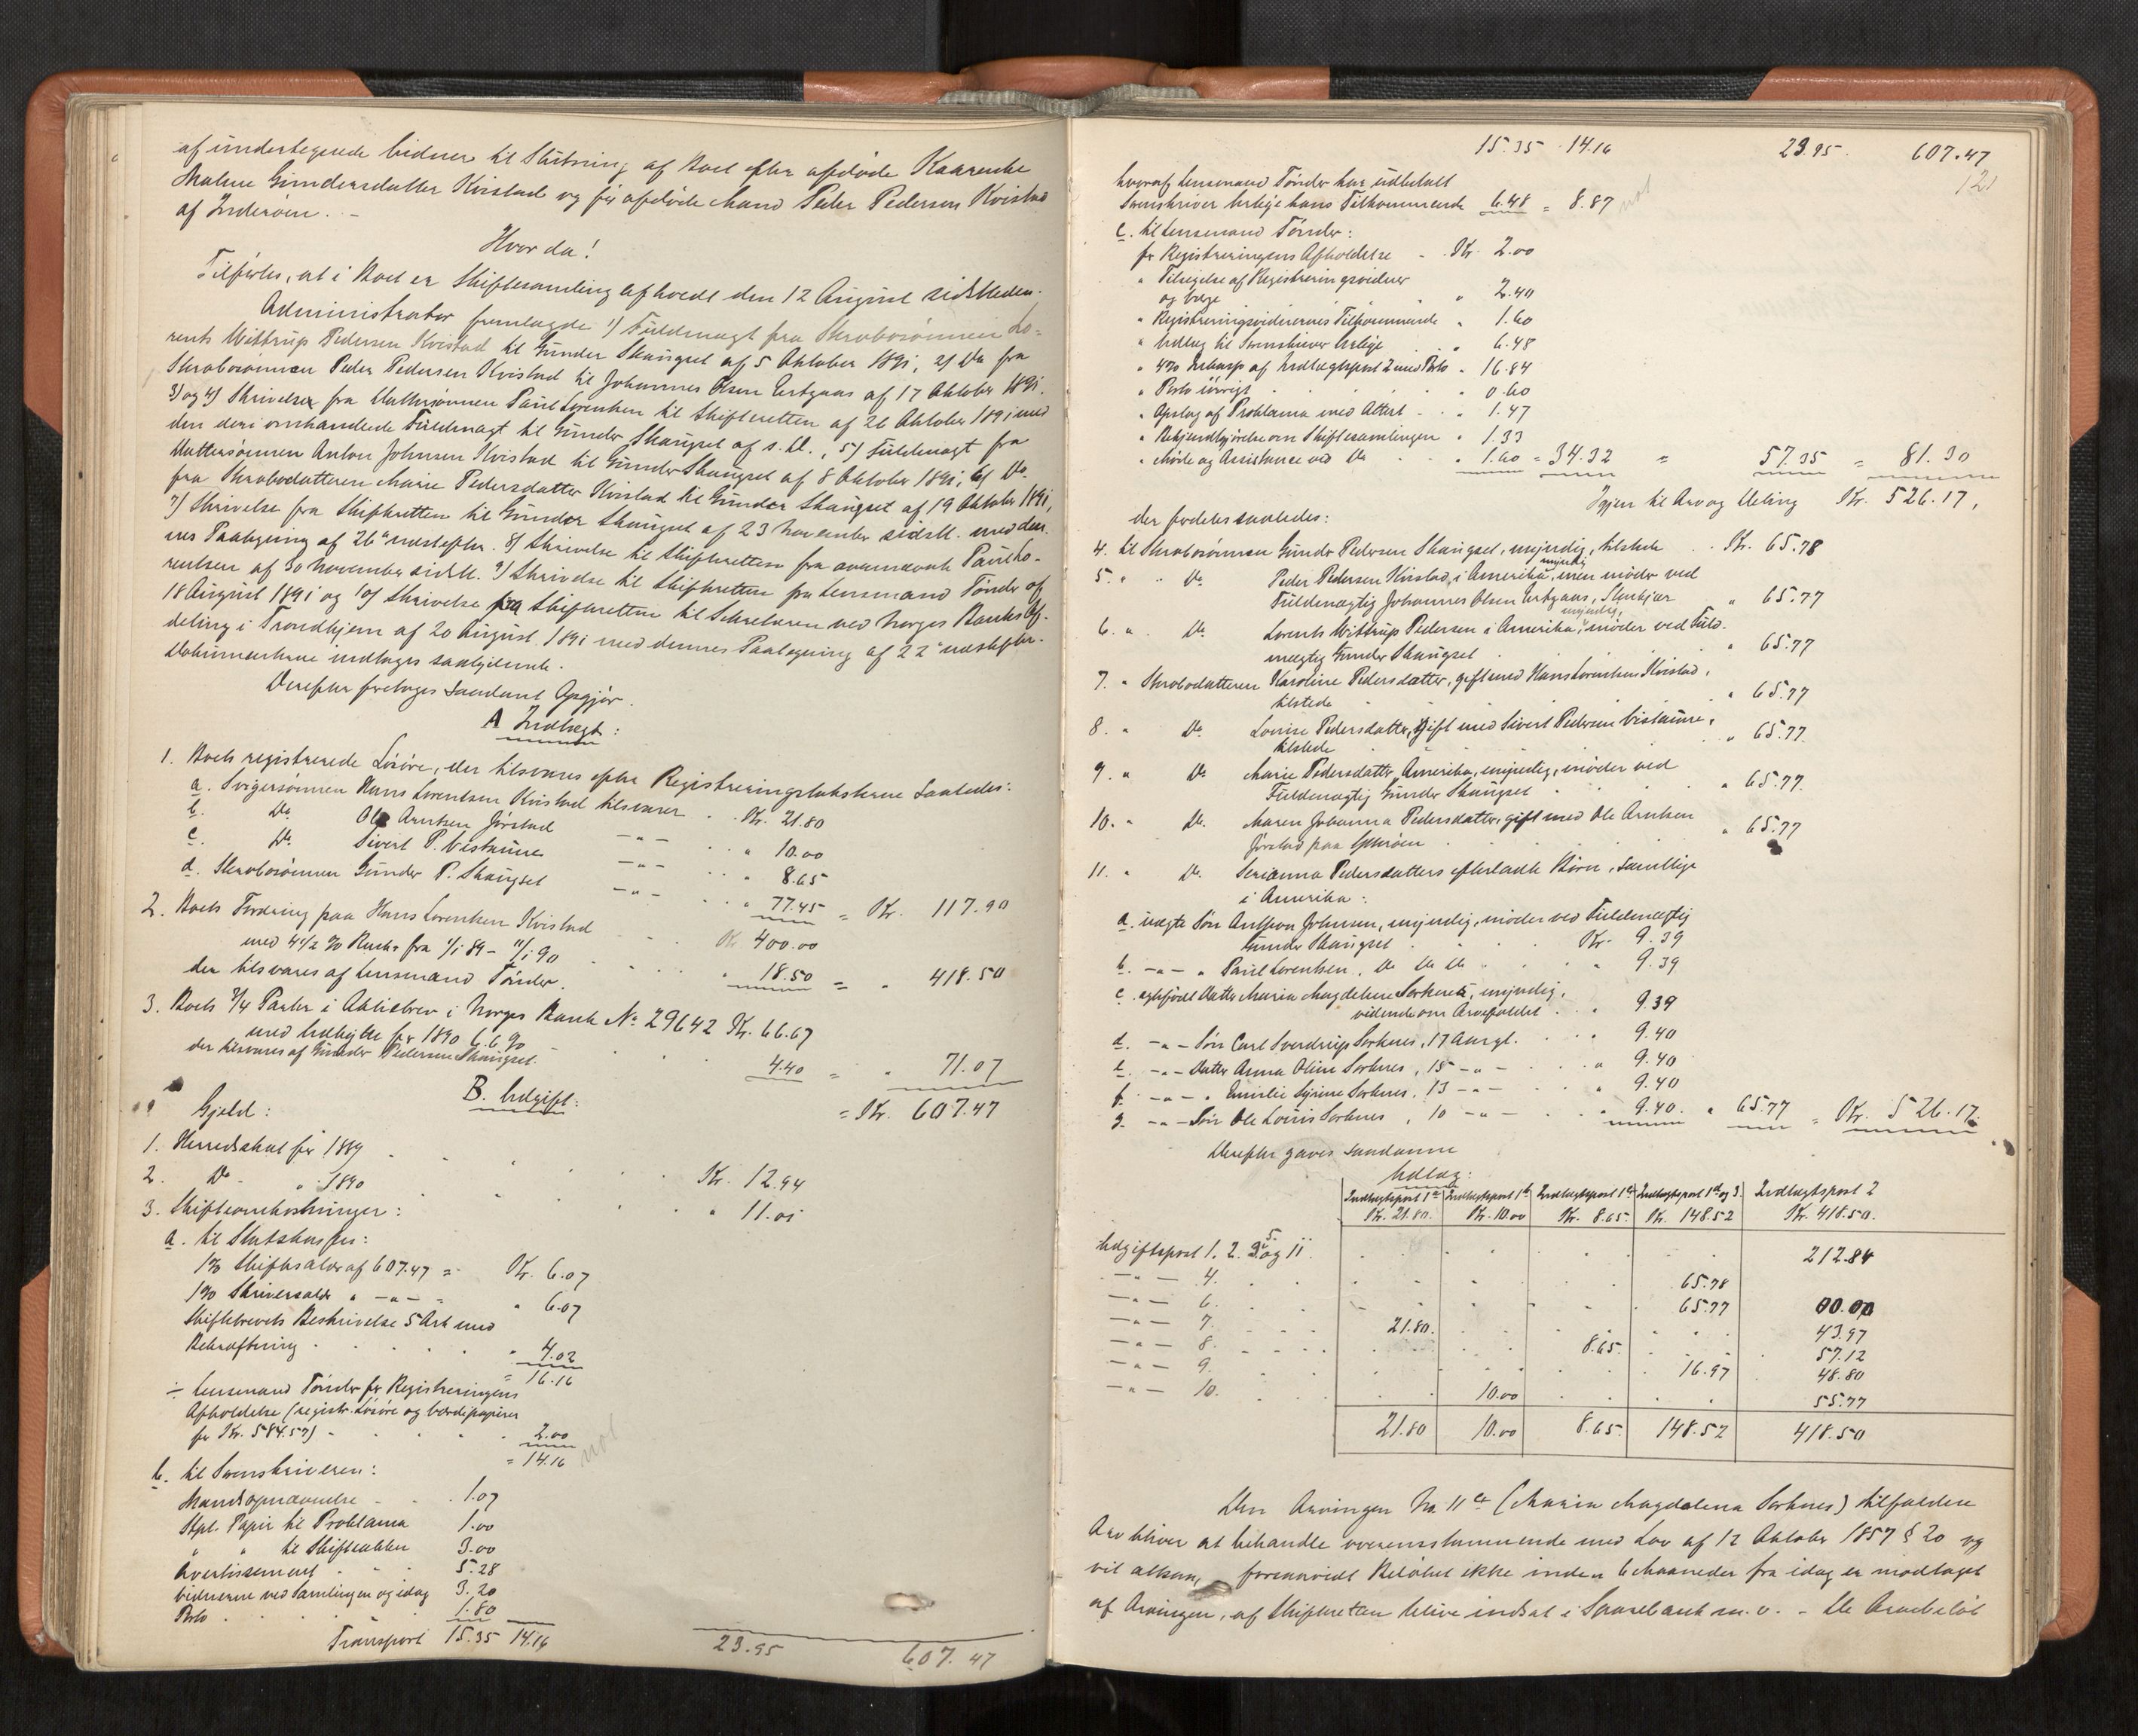 af undertegnede Vidner til Slutning af Boet efter afdøde Kaarenke
Malene Gundersdatter Kvistad og før afdøde Mand Peder Pedersen Kvistad
af Inderøen. -
Hvor da!
Tilførtes, at i Boet er Skiftesamling afholdt den 12 August sidstleden.
Administrator fremlagde 1) Fuldmagt fra Skrabosønnen Lo-
rents Wittrup Pedersen Kvistad til Gunder Skaugset af 5 Oktober 1891, 2) Do fra
Skrabosønnen Peder Pedersen Kvistad til Johannes Olsen af 17 Oktober 1891.
3) og 4) Skrivelse fra Dattersønnen Paul Lorentsen til Skifteretten af 26 Oktober 1891 med
den deri omhandlede Fuldmagt til Gunder Skaugset af s. D., 5) Fuldmagt fra
Dattersønnen Anton Johnsen Kvistad til Gunder Skaugset af 8 Oktober 1891, 6) Do
fra Skrabodatteren Marie Pedersdatter Kvistad til Gunder Skaugset af 19 Oktober 1891,
7) Skrivelse fra Skifteretten til Gunder Skaugset af 23 November sidstl. med den-
nes Paategning af 26de næstefter. 8) Skrivelse til Skifteretten fra ovennævnte Paul Lo-
rentsen af 30 November sidstl. 9) Skrivelse til Skifteretten fra Lensmand Tønder af
18 August 1891 og 10) Skrivelse fra Skifteretten til Sekretæren ved Norges Banks Af-
deling i Trondhjem af 20 August 1891 med dennes Paategning af 22de næstefter.
Dokumenterne indtages saalydende.
Derefter foretoges saadant Opgjør.
A Indtægt:
1. Boets registrerede Løsøre, der tilsvares efter Registreringstaksterne saaledes:
a. Svigersønnen Hans Lorentsen Kvistad tilsvarer . . Kr. 21.80
b. Do Ole Arntsen Jørstad -"- . . " 10.00
c. Do Sivert P. Vistaune -"- . . " 8.65
d. Skrabosønnen Gunder P. Skaugset -"- . . " 77.45 = Kr. 117.90
2. Boets Fordring paa Hans Lorentsen Kvistad . . Kr 400.00
med 4 1/2 % Renter fra 1/1 89 - 11/1 90 . . " 18.50 = " 418.50
der tilsvares af Lensmand Tønder.
3. Boets 3/4 Parter i Aktiebrev i Norges Bank No 29642 Kr. 66.67
med Udbytte for 1890 6.6 % . . 4.40 = " 71.07
der tilsvares af Gunder Pedersen Skaugset.
= Kr. 607.47
B. Udgift:
Gjeld:
1. Herredsskat for 1889 . . Kr. 12.94
2. Do " 1890 . . " 11.01
3. Skifteomkostninger:
a. til Statskassen:
1% Skifteafgift af 607.47 = Kr. 6.07
1% Skriversalær " -"- " 6.07
Skiftebrevets Beskrivelse 5 Ark med
Bekræftning . . " 4.02
= 16.16
÷ Lensmand Tønder for Registreringens
Afholdelse (registr. Løsøre og Værdipapirer
for Kr. 584.57) - . . 2.00
= 14.16
b. til Sorenskriveren:
Mandsopnævnelse - . . 1.07
Stpl. Papir til Proklama 1.00
" " til Skifteakten 3.00
Avertissement . . 5.28
Vidnerne ved Samlingen og idag 3.20
Porto . . 1.80
Transport 15.35 14.16 23.95 607.47
15.35 14.16 23.95. 607.47
121
hvoraf Lensmand Tønder har udbetalt
Sorenskriver hans Tilkommende 6.48 = 8.87
c. til Lensmand Tønder:
for Registreringens Afholdelse - . Kr. 2.00
" Tilsigelse af Registreringsvidner
og " 2.40
" Registreringsvidnernes Tilkommende " 1.60
" Udlæg til Sorenskriver " 6.48
" 4% Inkasso af Indtægtspost 2 med Porto " 16.84
" Porto iøvrigt " 0.60
" Opslag af Proklama med Attest - . " 1.47
" Bekjendtgjørelse om Skiftesamlingen " 1.33
" Møde og Assistance ved Do . . " 1.60 = 34.32 = 57.35 = 81.30
Igjen til Arv og Deling Kr. 526.17,
der fordeles saaledes:
4. til Skrabosønnen Gunder Pedersen Skaugset, myndig, tilstede . Kr. 65.78
5. " " Do Peder Pedersen Kvistad, i Amerika, myndig, men møder ved
Fuldmægtig Johannes Olsen , Stenkjær " 65.77
6. " Do Lorents Wittrup Pedersen i Amerika, myndig, møder ved Fuld-
mægtig Gunder Skaugset . " 65.77
7. " Skrabodatteren Karoline Pedersdatter, gift med Hans Lorentsen Kvistad,
tilstede . " 65.77
8. " Do Lovise Pedersdatter, gift med Sivert Pedersen Vistaune,
tilstede " 65.77.
9. " Do Marie Pedersdatter, Amerika, myndig, møder ved
Fuldmægtig Gunder Skaugset . " 65.77.
10. " Do. Maren Johanna Pedersdatter, gift med Ole Arntsen
Jørstad paa Ytterøen . " 65.77
11. " Do Serianna Pedersdatters efterladte Børn, samtlige
i Amerika:
a. uægte Søn Anton Johnsen, myndig, møder ved Fuldmægtig
Gunder Skaugset . . Kr. 9.39
b. -"- " Paul Lorentsen, Do Do Do . . " 9.39
c. ægtefødt Datter Maria Magdalena Sorknes, myndig,
vidende om Arvefaldet . . 9.39
d. -"- Søn Carl Sverdrup Sorknes, 17 Aar gl. . " 9.40
e. -"- Datter Anna Oline Sorknes, 15 -"- . " 9.40
f. -"- " Emilie Sorknes, 13 -"- . " 9.40
g. -"- Søn Ole Louis Sorknes, 10 -"- . " 9.40. " 65.77 = Kr. 526.17.
Derefter gaves saadanne
Udlæg:
Indtægtspost 1a Indtægtspost 1b Indtægtspost 1c Indtægtspost 1d og 3. Indtægtspost 2
Kr. 21.80. Kr. 10.00 Kr. 8.65. Kr. 148.52 Kr. 418.50.
Udgiftspost 1. 2. 3. 5. og 11. 212.84
-"- 4. 65.78
-"- 6. 65.77 00.00
-"- 7. 21.80. 43.97
-"- 8. 8.65. 57.12
-"- 9. 16.97 48.80
-"- 10. 10.00 55.77
21.80 10.00 8.65. 148.52 418.50
Den Arvingen No. 11c (Maria Magdalena Sorknes) tilfaldne
Arv bliver at behandle overensstemmende med Lov af 12 Oktober 1857 § 20 og
vil altsaa, forsaavidt Beløbet ikke inden 6 Maaneder fra idag er modtaget
af Arvingen, af Skifteretten blive indsat i Sparebank m. v. - De Arvebeløb